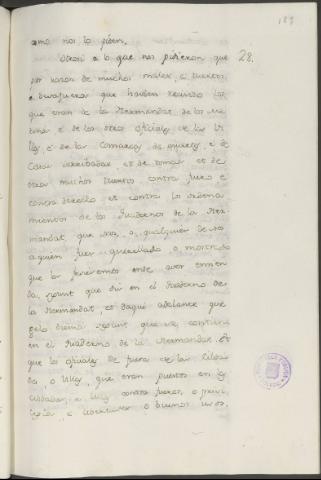 como nos lo piden.
Otrosi a lo que nos pidieron que 28.
por razon de muchos males, e tuertos,
e desafueros que havien recivido los
que eran de la Hermandat de los
e de los otros oficiales de las Vi-
llas e de las Comarcas de , e de
Casas derribadas et de tomas et de
otros muchos tuertos contra fuero e
contra derecho et contra los ordena-
mientos de los Quadernos de la Her-
mandat, que nos, o qualquier de nos
a quien fuer querellado, o mostrado
que lo fagamos ende aver emien-
da, segunt que diz en el Quaderno de
la Hermandat, et daqui adelante que
gelo segunt que se contiene
en el Quaderno de la Hermandat. Et
que los oficiales de fuera de las Cibda-
des, o Villas, que eran puestos en las
Cibdades, e Villas contra fueros, o previ-
legios, e , o buenos usos,